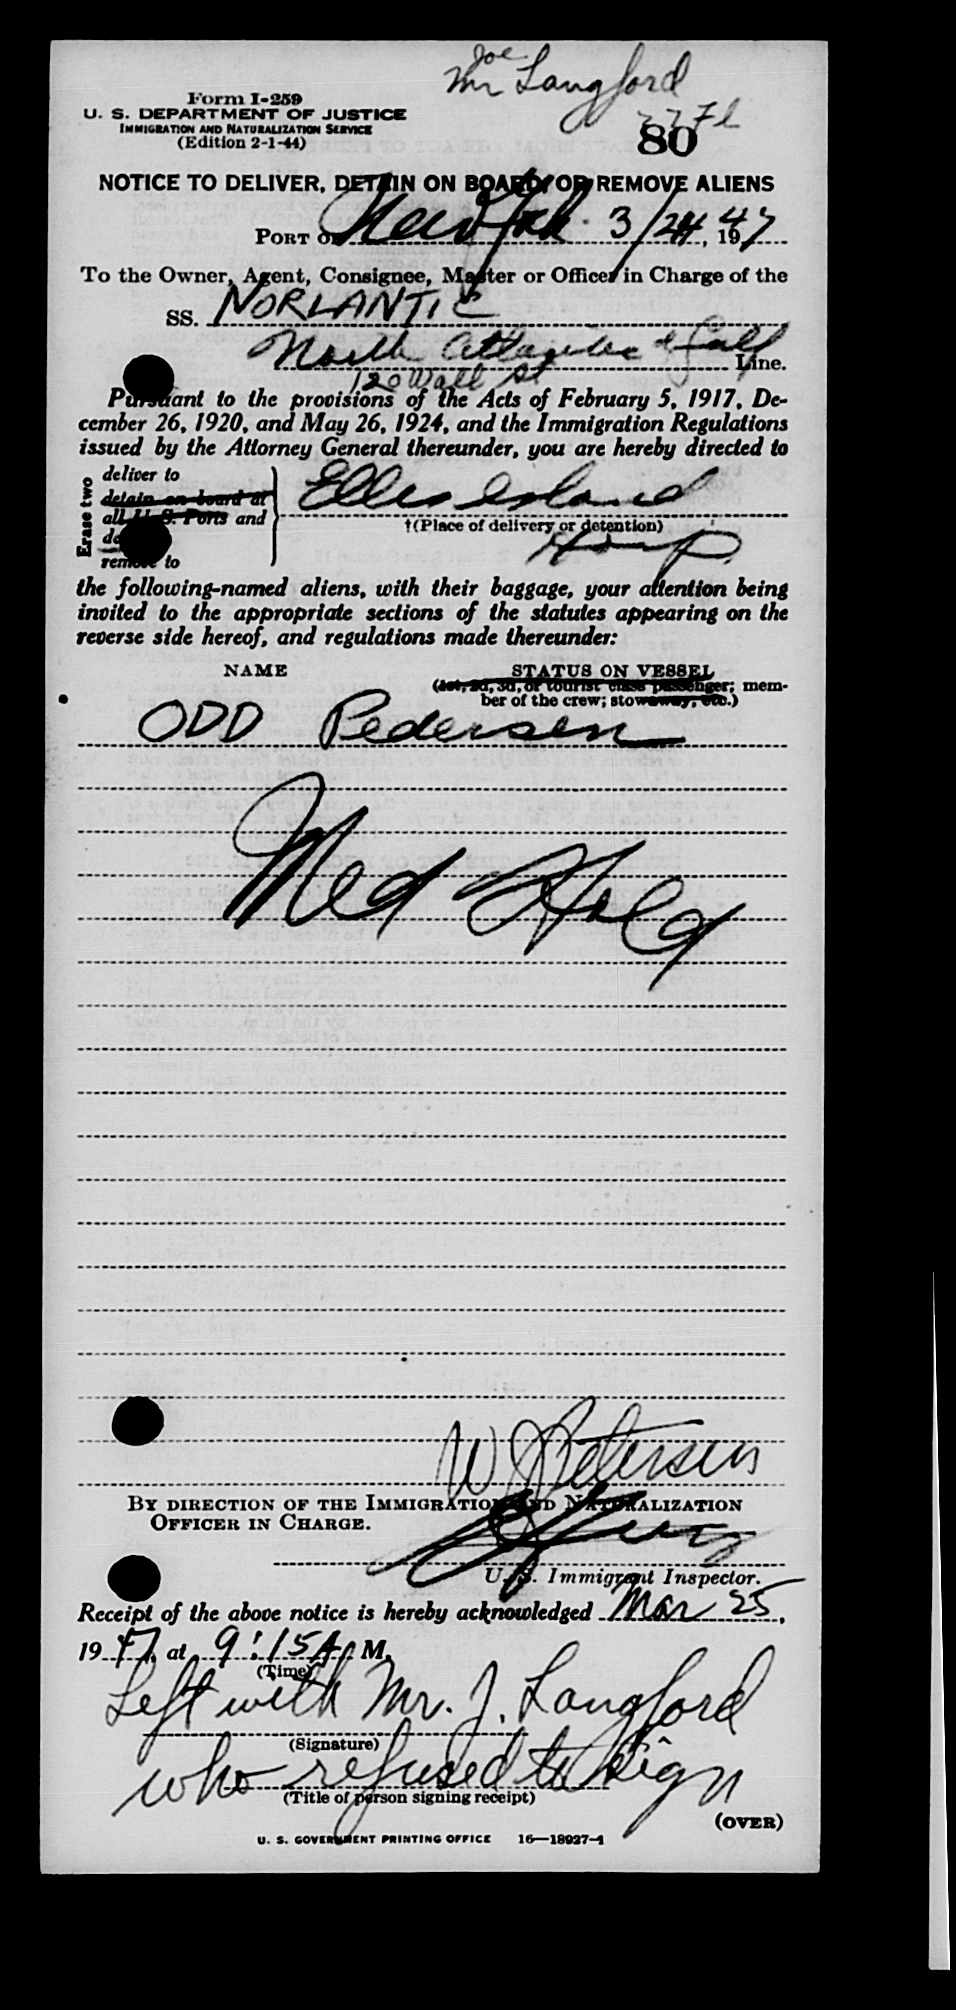 Joe
Mr Langford
Form I-259
U. S. DEPARTMENT OF JUSTICE
IMMIGRATION AND NATURALIZATION SERVICE
(Edition 2-1-44)
27 Fl
80
NOTICE TO DELIVER, DETAIN ON BOARD, OR REMOVE ALIENS
PORT OF New York 3/24, 1947
To the Owner, Agent, Consignee, Master or Officer in Charge of the
SS. NORLANTIC
North Atlantic & Gulf Line.
120 Wall St
Pursuant to the provisions of the Acts of February 5, 1917, De-
cember 26, 1920, and May 26, 1924, and the Immigration Regulations
issued by the Attorney General thereunder, you are hereby directed to
Erase two
deliver to
detain on board at
all U. S. Ports and
de
remove to
Ellis Island
†(Place of delivery or detention)
Hosp.
the following-named aliens, with their baggage, your attention being
invited to the appropriate sections of the statutes appearing on the
reverse side hereof, and regulations made thereunder:
NAME STATUS ON VESSEL
(1st, 2d, 3d, or tourist class passenger; mem-
ber of the crew; stowaway, etc.)
ODD Pedersen
Med Hold
W J Petersen
BY DIRECTION OF THE IMMIGRATION AND NATURALIZATION
OFFICER IN CHARGE.
U. S. Immigrant Inspector.
Receipt of the above notice is hereby acknowledged Mar 25,
1947, at 9:15 A M.
(Time)
Left with Mr. J. Langford
(Signature)
who refused to sign
(Title of person signing receipt)
(OVER)
U. S. GOVERNMENT PRINTING OFFICE 16—18927-1